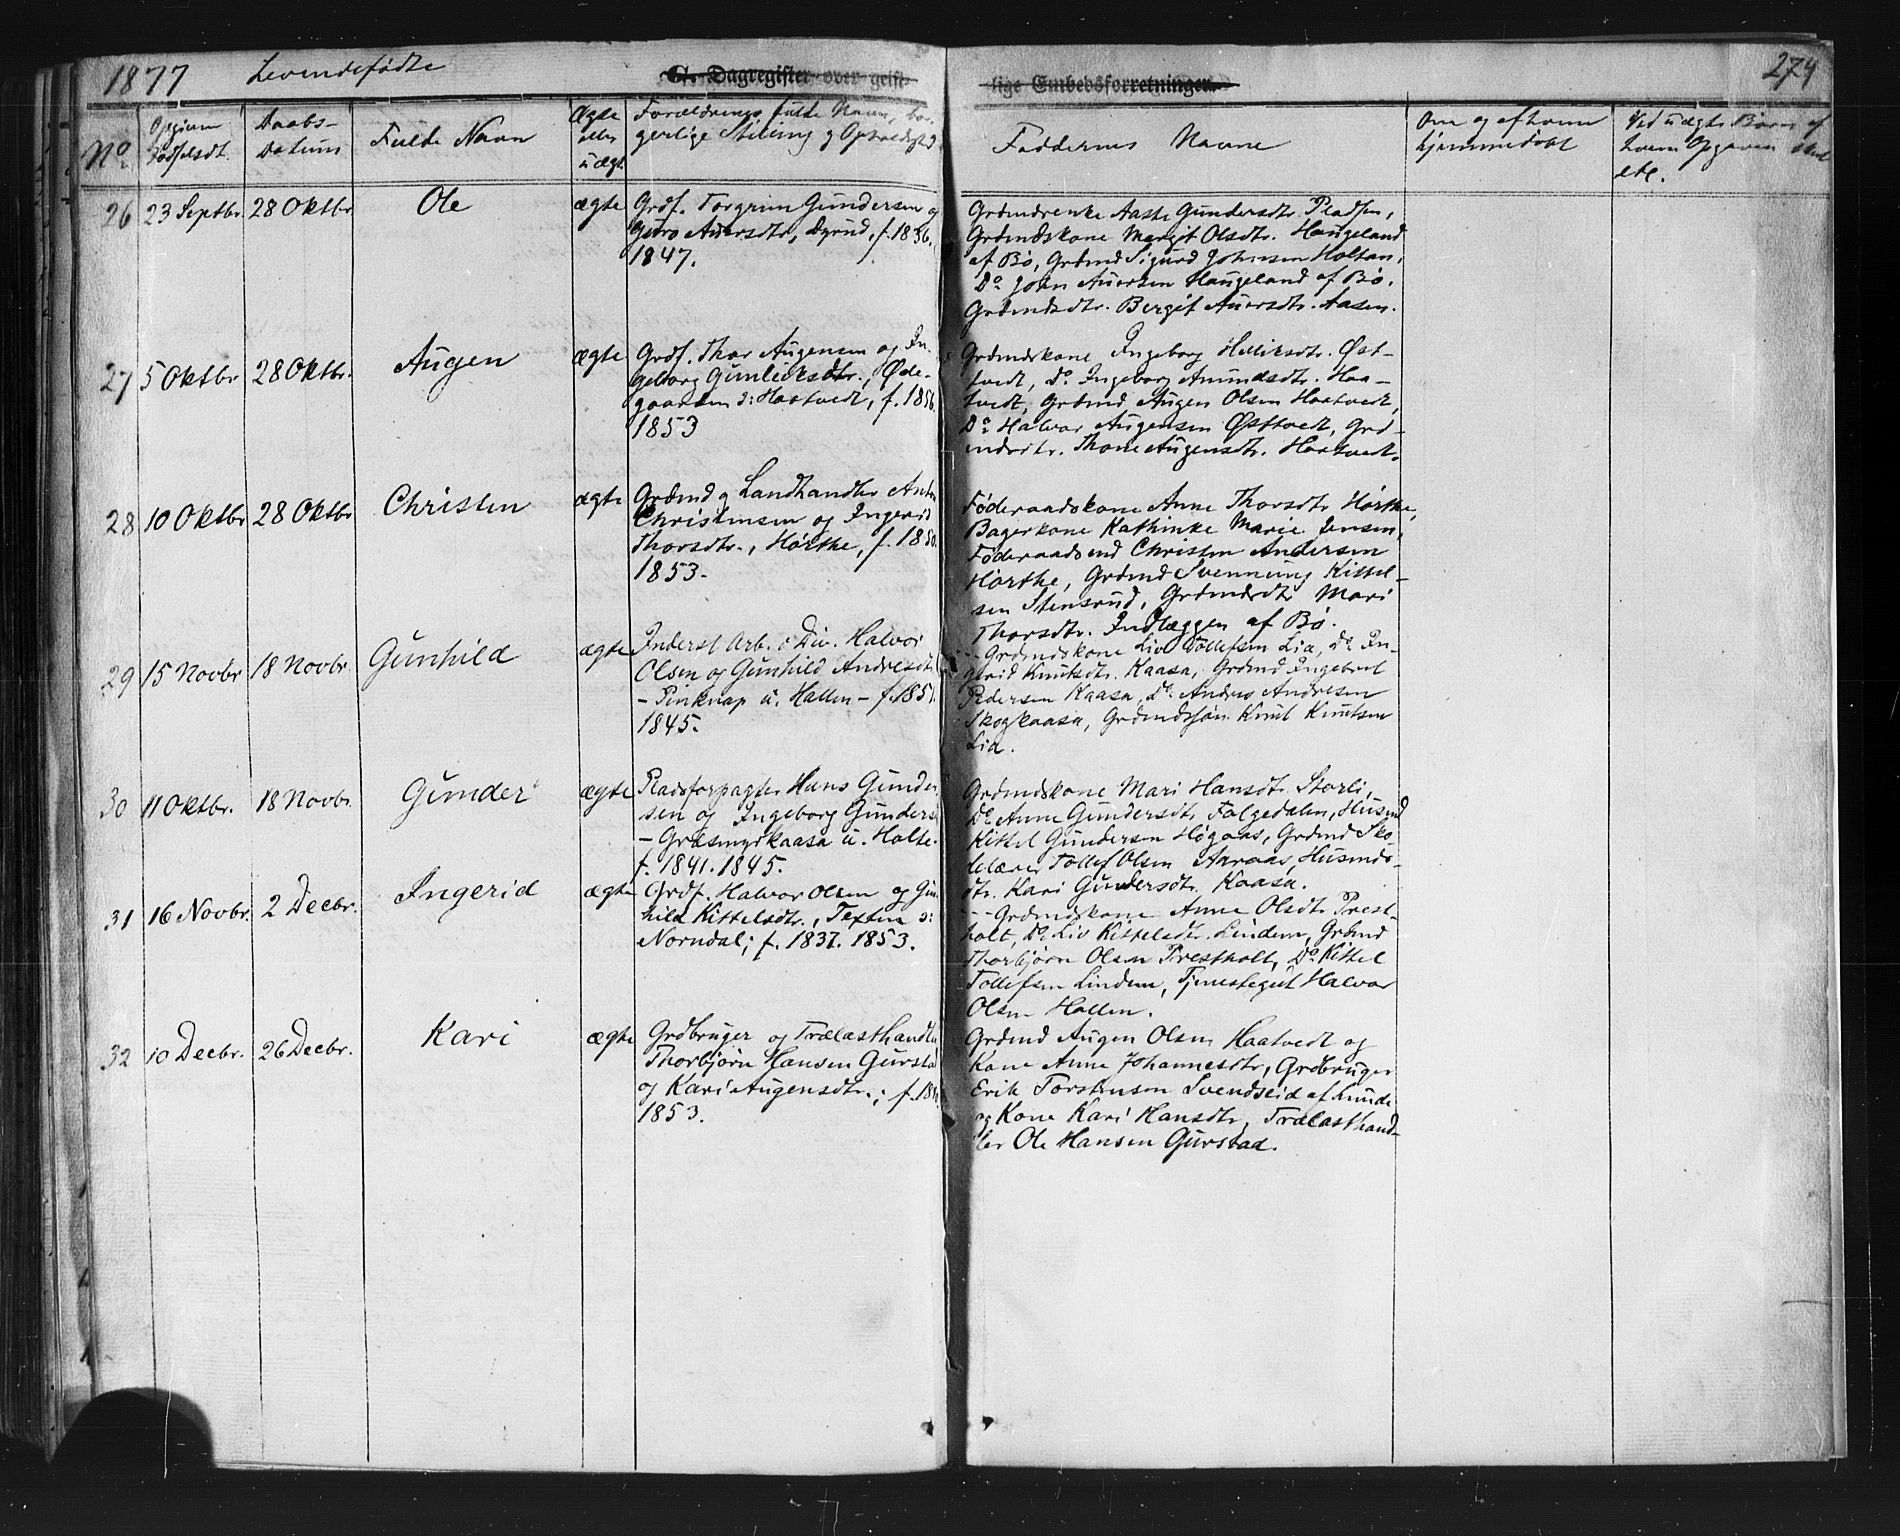 1877 Levendefødte
G. Dagregister over geist-
lige Embedsforretninger.
274
No
Opgivne Fødselsdt.
Daabs-Datum
Fulde Navn
Ægte eller uægte
Forældrenes fulde Navn, bor-
gerlige Stilling og Opholdsst.
Faddernes Navne
Om og af hvem
hjemmedøbt
Ved uægte Børn af
hvem Opgaven
etc.
26 23 Septbr. 28 Oktbr Ole ægte
Grdf. Torgrim Gundersen og
Guro Auversdtr,
f. 1836.
1847.
Grdmdrenke Aaste Gundersdtr. Pladsen,
Grdmdskone Margit Olsdtr. Haugeland
af Bø, Grdmd Sigurd Johnsen Holtan,
Do John Auversen Haugeland af Bø.
Grdmdsdtr. Bergit Auversdtr. Aasen.
27 5 Oktbr 28 Oktbr. Augen ægte
Grdf. Thor Augensen og In-
geborg Gunleiksdtr., Øde-
gaarden o: Haatvedt, f. 1856.
1853
Grdmdskone Ingeborg Helliksdtr. Øst-
tvedt, Do Ingeborg Amundsdtr. Haa-
tvedt, Grdmd Augen Olsen Haatvedt,
Do Halvor Augensen Østtvedt, Grd-
mdsdtr. Thone Augensdtr. Haatvedt.
28 10 Oktbr 28 Oktbr Christen ægte
Grdmd og Landhandler Anders
Christensen og Ingerid
Thorsdtr., Hørthe, f. 1850.
1853.
Føderaadskone Anne Thorsdtr Hørthe,
Bagerkone Kathinke Marie Jensen,
Føderaadsmd Christen Andersen
Hørthe, Grdmd Svennung Kittel-
sen Stensrud, Grdmdsdtr Mari
Thorsdtr. Indlæggen af Bø.
29 15 Novbr 18 Novbr. Gunhild ægte
Inderst Arb. i Div. Halvor
Olsen og Gunhild Andresdtr
- Pinknap u. Hallen - f. 1851.
1845.
Grdmdskone Liv Tollefsen Lia, Do In-
gerid Knutsdtr. Kaasa, Grdmd Ingebret
Pedersen Kaasa, Do Andres Andresen
Skogkaasa, Grdmdssøn Knut Knutsen
Lia.
30 11 Oktbr. 18 Novbr. Gunder ægte
Pladsforpagter Hans Gunder
sen og Ingeborg Gunders
- Græsmyrkaasa u. Holte.
f. 1841. 1845.
Grdmdskone Mari Hansdtr. Storli,
Do Anne Gundersdtr. Folgedalen, Husmd
Kittel Gundersen Høgaas, Grdmd Sko-
lelærer Tollef Olsen Aaraas, Husmds-
dtr. Kari Gundersdtr. Kaasa.
31 16 Novbr. 2 Decbr. Ingerid ægte
Grdf. Halvor Olsen og Gun
hild Kittelsdtr., Texten o:
Norndal; f. 1837. 1853.
Grdmdskone Anne Olsdtr. Prest-
holt, Do Liv Kittelsdtr. Linden, Grdmd
Thorbjørn Olsen Prestholt, Do Kittel
Tollefsen Linden, Tjenestegut Halvor
Olsen Hallen.
32 10 Decbr. 26 Decbr. Kari ægte
Grdbruger og Trælasthandler
Thorbjørn Hansen Gurstad
og Kari Augensdtr.; f. 18
1853.
Grdmd Augen Olsen Haatvedt og
Kone Anne Johannesdtr, Grdbruger
Erik Torstensen Svendseid af Lunde
og Kone Kari Hansdtr, Trælasthand-
ler Ole Hansen Gurstad.